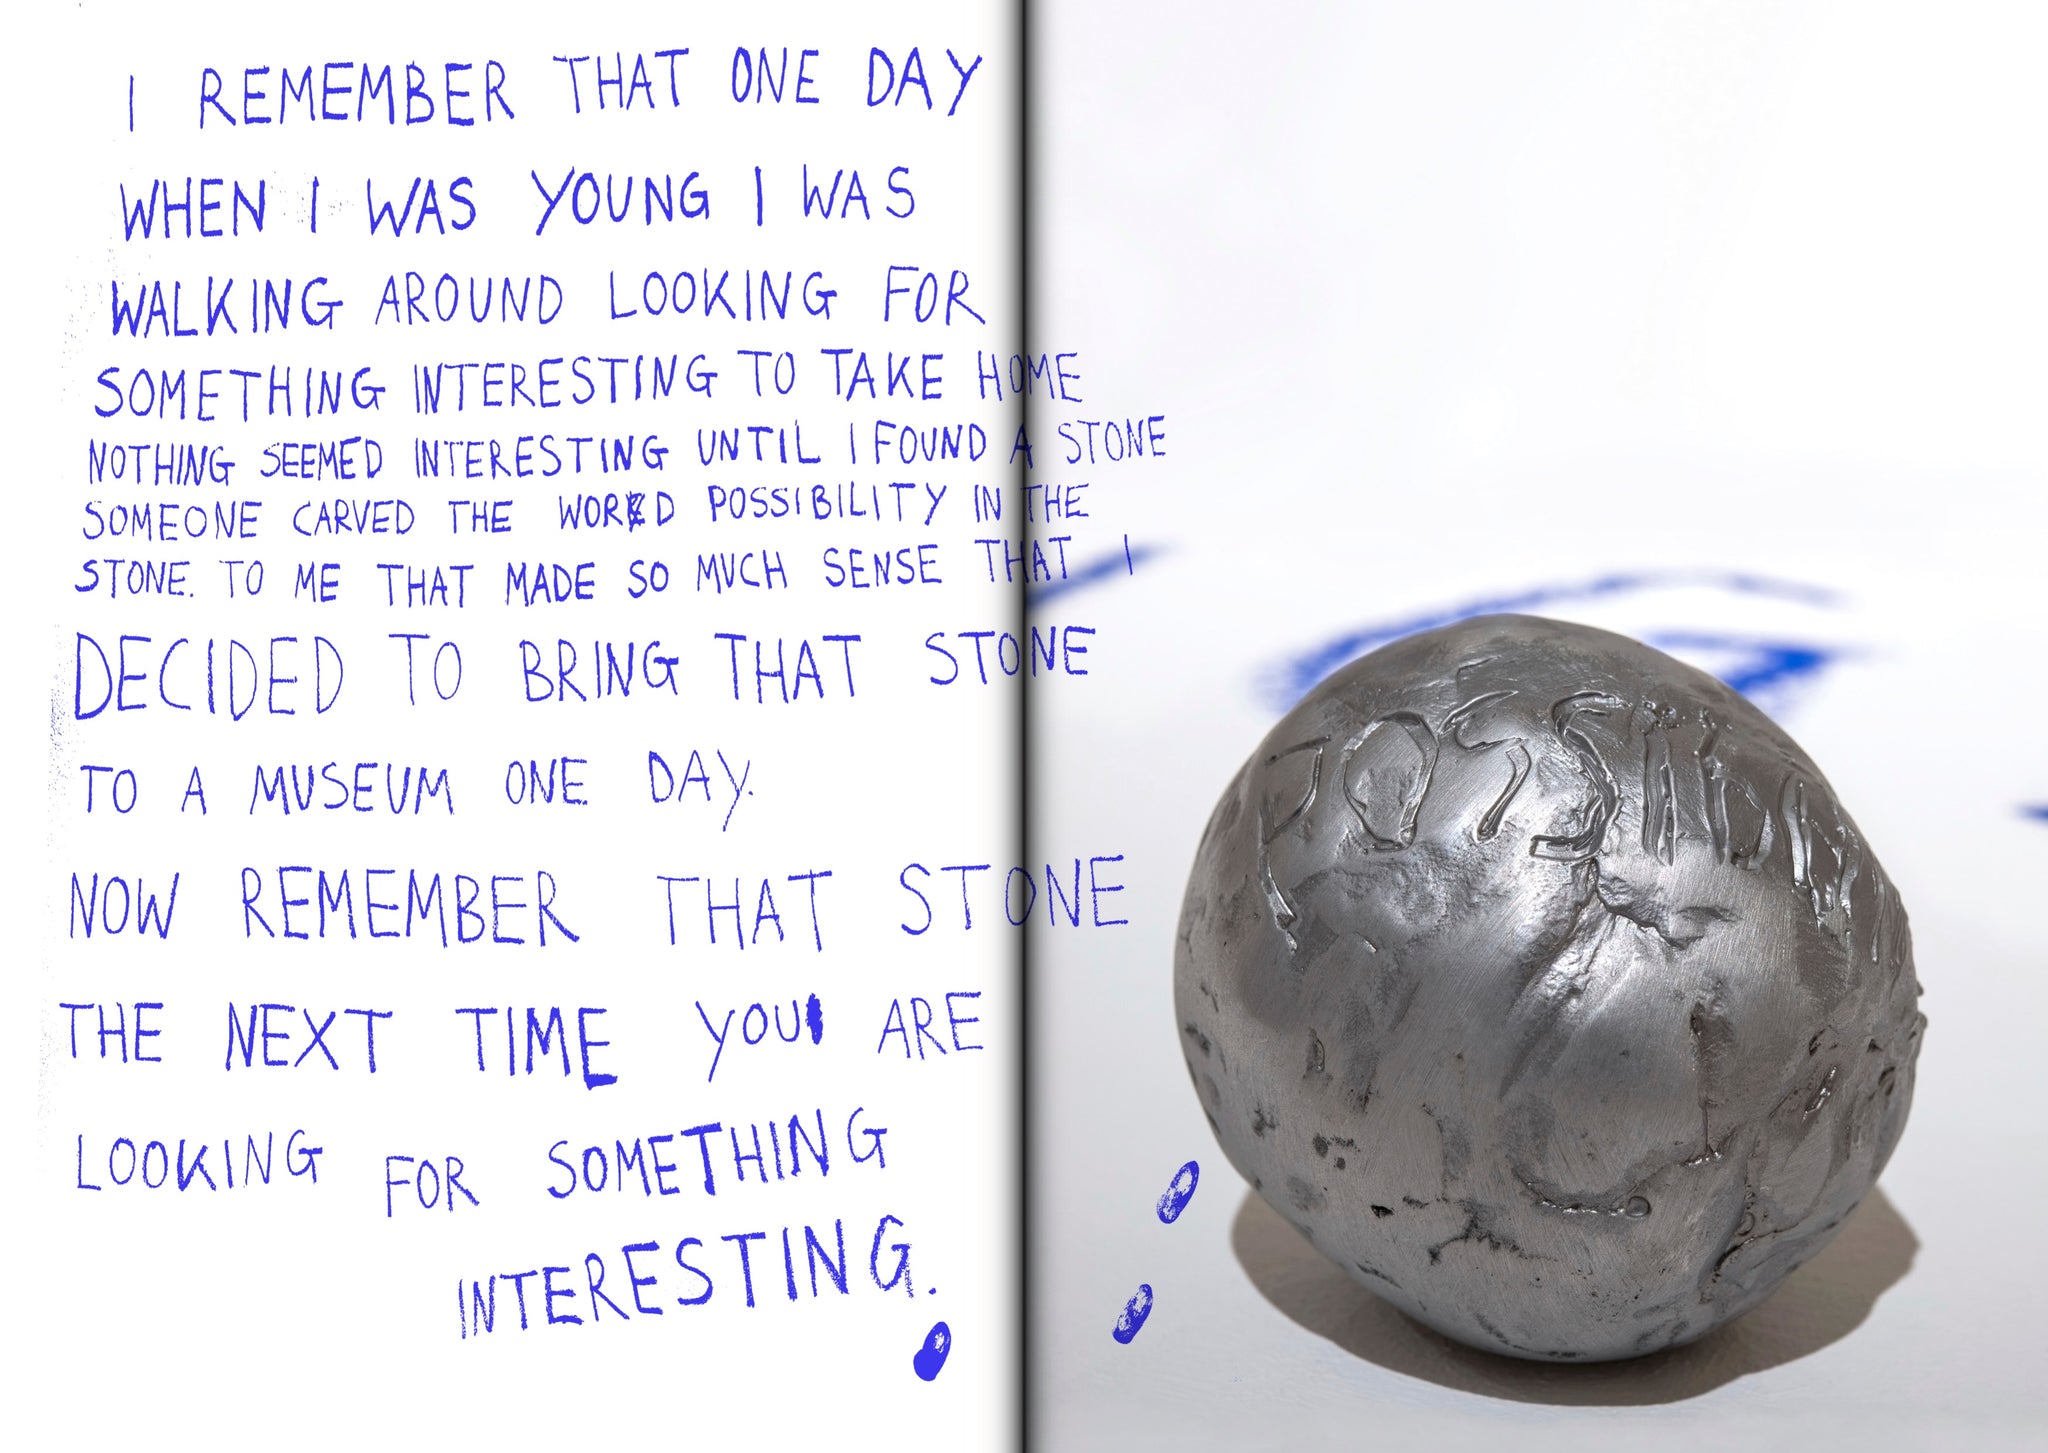 I REMEMBER THAT ONE DAY
WHEN I WAS YOUNG I WAS
WALKING AROUND LOOKING FOR
SOMETHING INTERESTING TO TAKE HOME
NOTHING SEEMED INTERESTING UNTIL I FOUND A STONE
SOMEONE CARVED THE WORD POSSIBILITY IN THE
STONE. TO ME THAT MADE SO MUCH SENSE THAT I
DECIDED TO BRING THAT STONE
TO A MUSEUM ONE DAY.
NOW REMEMBER THAT STONE
THE NEXT TIME YOU ARE
LOOKING FOR SOMETHING
INTERESTING.